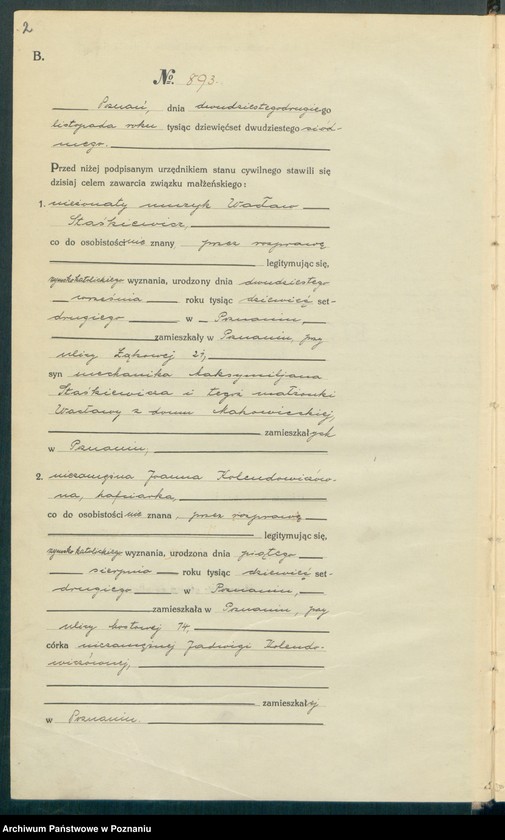 2
B.
№ 893.
Poznań, dnia dwudziestegodrugiego
listopada roku tysiąc dziewięćset dwudziestego siód-
mego.
Przed niżej podpisanym urzędnikiem stanu cywilnego stawili się
dzisiaj celem zawarcia związku małżeńskiego:
1. nieżonaty muzyk Wacław
Staśkiewicz,
co do osobistości nie znany przez rozprawę
legitymując się,
rzymskokatolickiego wyznania, urodzony dnia dwudziestego
września roku tysiąc dziewięć set-
drugiego w Poznaniu,
zamieszkały w Poznaniu, przy
ulicy Łąkowej 21,
syn mechanika Maksymiljana
Staśkiewicza i tegoż małżonki
Wacławy z domu Makowieckiej,
zamieszkałych
w Poznaniu,
2. niezamężna Joanna Kolendowiczów-
na, hafciarka,
co do osobistości nie znana, przez rozprawę
legitymując się,
rzymskokatolickiego wyznania, urodzona dnia piątego
sierpnia roku tysiąc dziewięć set-
drugiego w Poznaniu,
zamieszkała w Poznaniu, przy
ulicy 74,
córka niezamężnej Jadwigi Kolendo-
wiczównej,
zamieszkałej
w Poznaniu.
Archiwum Państwowe w Poznaniu